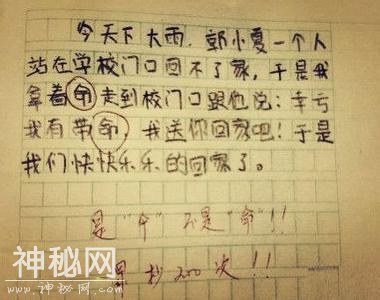 今天下大雨，郭小夏一个人
站在学校门口回不了家，于是我
拿着命走到校门口跟他说：幸亏
我有带命，我送你回家吧！于是
我们快快乐乐的回家了。
是“伞”不是“命”！！
罚抄200次！！
神秘网
www.神秘网.com